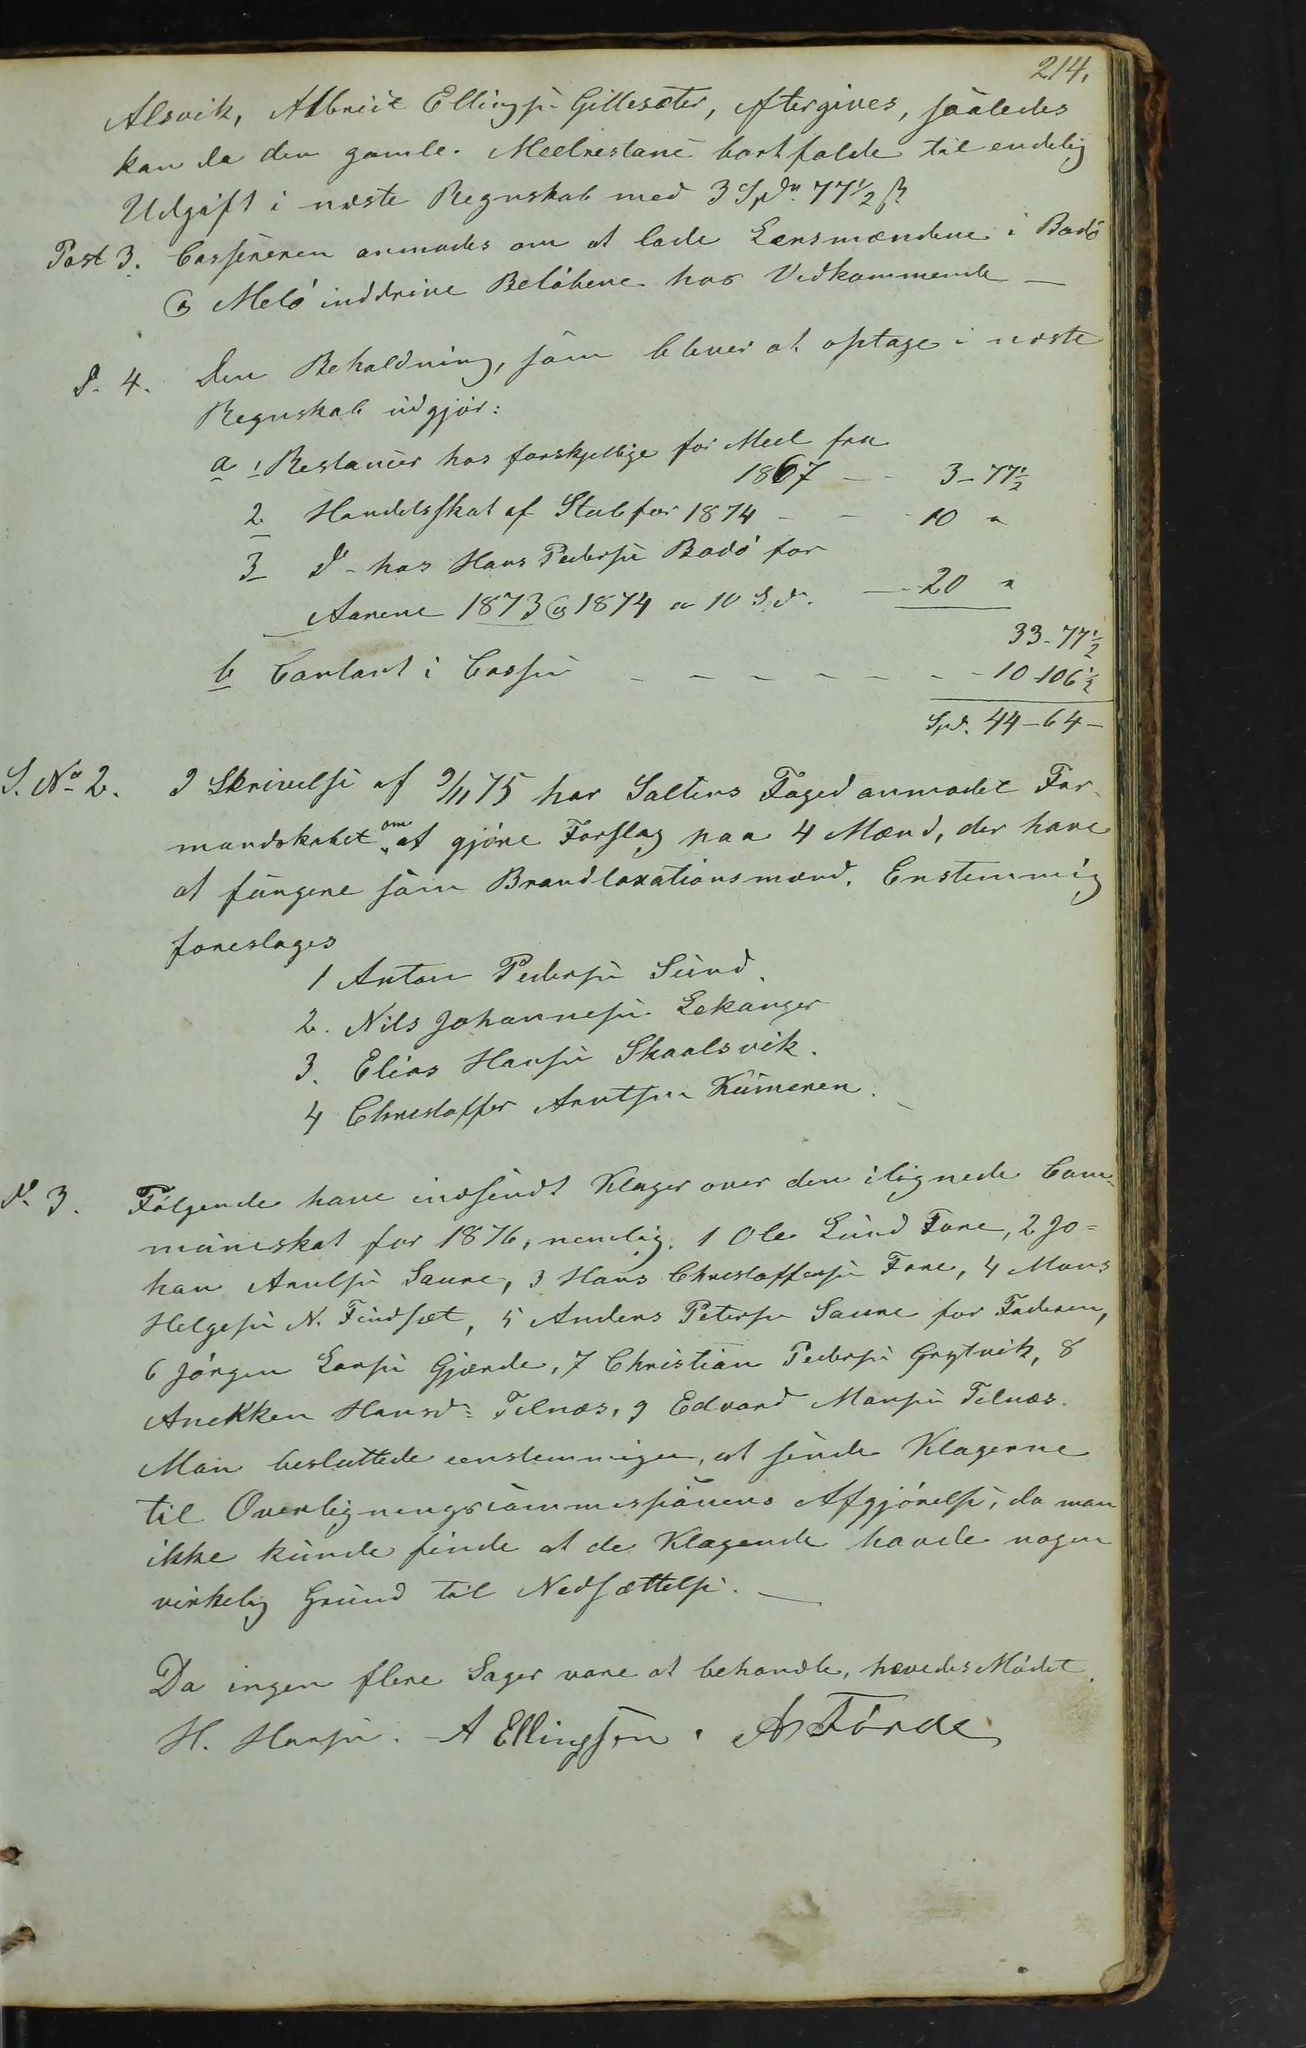 214.
Alsvik, Albrict Ellingsen Gillesæter, eftergives, saaledes
kan da den gamle Meelrestance bortfalde til endelig
Udgift i næste Regnskab med 3 Spdr. 77 1/2 ß
Post 3. Cassereren anmodes om at lade Lensmændene i Bodø
og Melø inddrive Beløbene hos Vedkommende —
Do. 4. Den Beholdning, som bliver at optage i næste
Regnskab udgjør:
a 1 Restancer hos forskjellige for Meel fra
1867 — - 3 - 77 1/2
2 Handelsskat af Stub for 1874 - - - 10 "
3 Do - hos Hans Pedersen Bodø for
Aarene 1873 og 1874 a 10 Spd. — 20 "
33 - 77 1/2
b Contant i Cassen - - - - - - - 10 - 106 1/2
Spd. 44 - 64 -
S. No 2. I Skrivelse af 9/11 75 har Saltens Foged anmodet For-
mandskabet om at gjøre Forslag paa 4 Mænd, der have
at fungere som Brandtaxationsmænd. Enstemmig
foreslages
1 Anton Pedersen Sund.
2. Nils Johannesen Lekanger
3. Elias Hansen Skaalsvik.
4 Christoffer Arntsen Kunneren.
Do. 3. Følgende have indsendt Klager over den ilignede Com-
muneskat for 1876, nemlig: 1 Ole Lund Fore, 2 Jo=
han Arntsen Saure, 3 Hans Christoffersen Fore, 4 Mons
Helgesen N. Findset, 5 Anders Petersen Saure for Faderen,
6 Jørgen Larsen Gjærde, 7 Christian Pedersen Grytvik, 8
Anekken Hansdr. Telnæs, 9 Edvard Monsen Telnæs.
Man besluttede eenstemmigen, at sende Klagerne
til Overligningscommissionens Afgjørelse, da man
ikke kunde finde at de Klagende havde nogen
virkelig Grund til Nedsættelse. —
Da ingen flere Sager vare at behandle, hævedes Mødet.
H. Hansen. A Ellingsen. A Förde